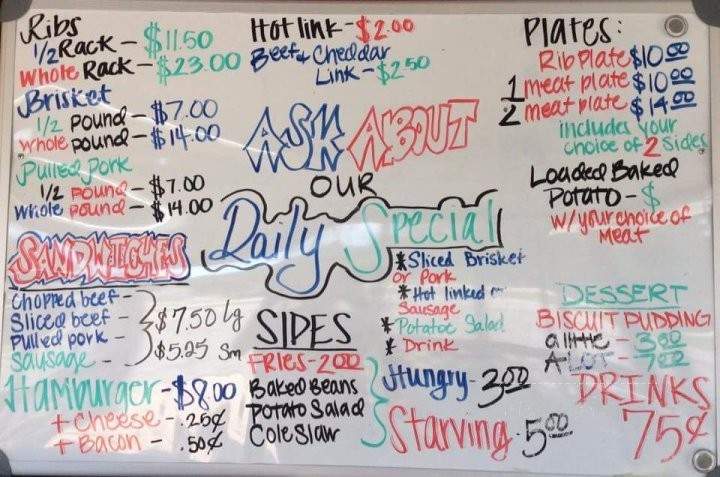 Ribs
1/2 Rack - $11.50
Whole Rack - $23.00
Brisket
1/2 pound - $7.00
Whole pound - $14.00
Pulled pork
1/2 pound - $7.00
Whole pound - $14.00
SANDWICHES
Chopped beef -
Sliced beef -
Pulled pork -
Sausage -
$7.50 lg
$5.25 Sm
Hamburger - $8.00
+ Cheese - .25¢
+ Bacon - .50¢
Hot link - $2.00
Beef & Cheddar
Link - $2.50
ASK ABOUT
OUR
Daily Special
*Sliced Brisket
or Pork
*Hot linked or
Sausage
*Potatoe Salad
*Drink
SIDES
FRIES - 2.00
Baked Beans
Potato Salad
Cole Slaw
Hungry - 3.00
Starving - 5.00
Plates:
Rib Plate $10.00
1 meat plate $10.00
2 meat plate $14.00
includes your
choice of 2 Sides
Loaded Baked
Potato - $
w/ your choice of
Meat
DESSERT
BISCUIT PUDDING
a little - 3.00
A LOT - 7.00
DRINKS
75¢